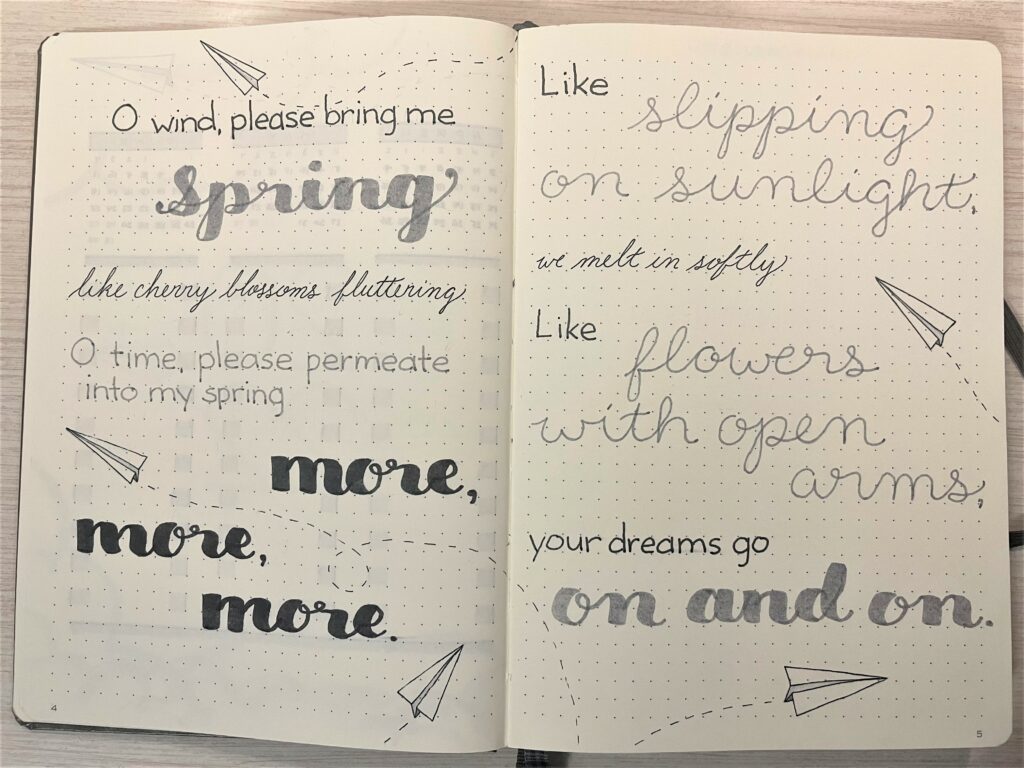 O wind, please bring me
spring
like cherry blossoms fluttering.
O time, please permeate
into my spring
more,
more,
more.
4
Like
slipping
on sunlight,
we melt in softly.
Like
flowers
with open
arms,
your dreams go
on and on.
5